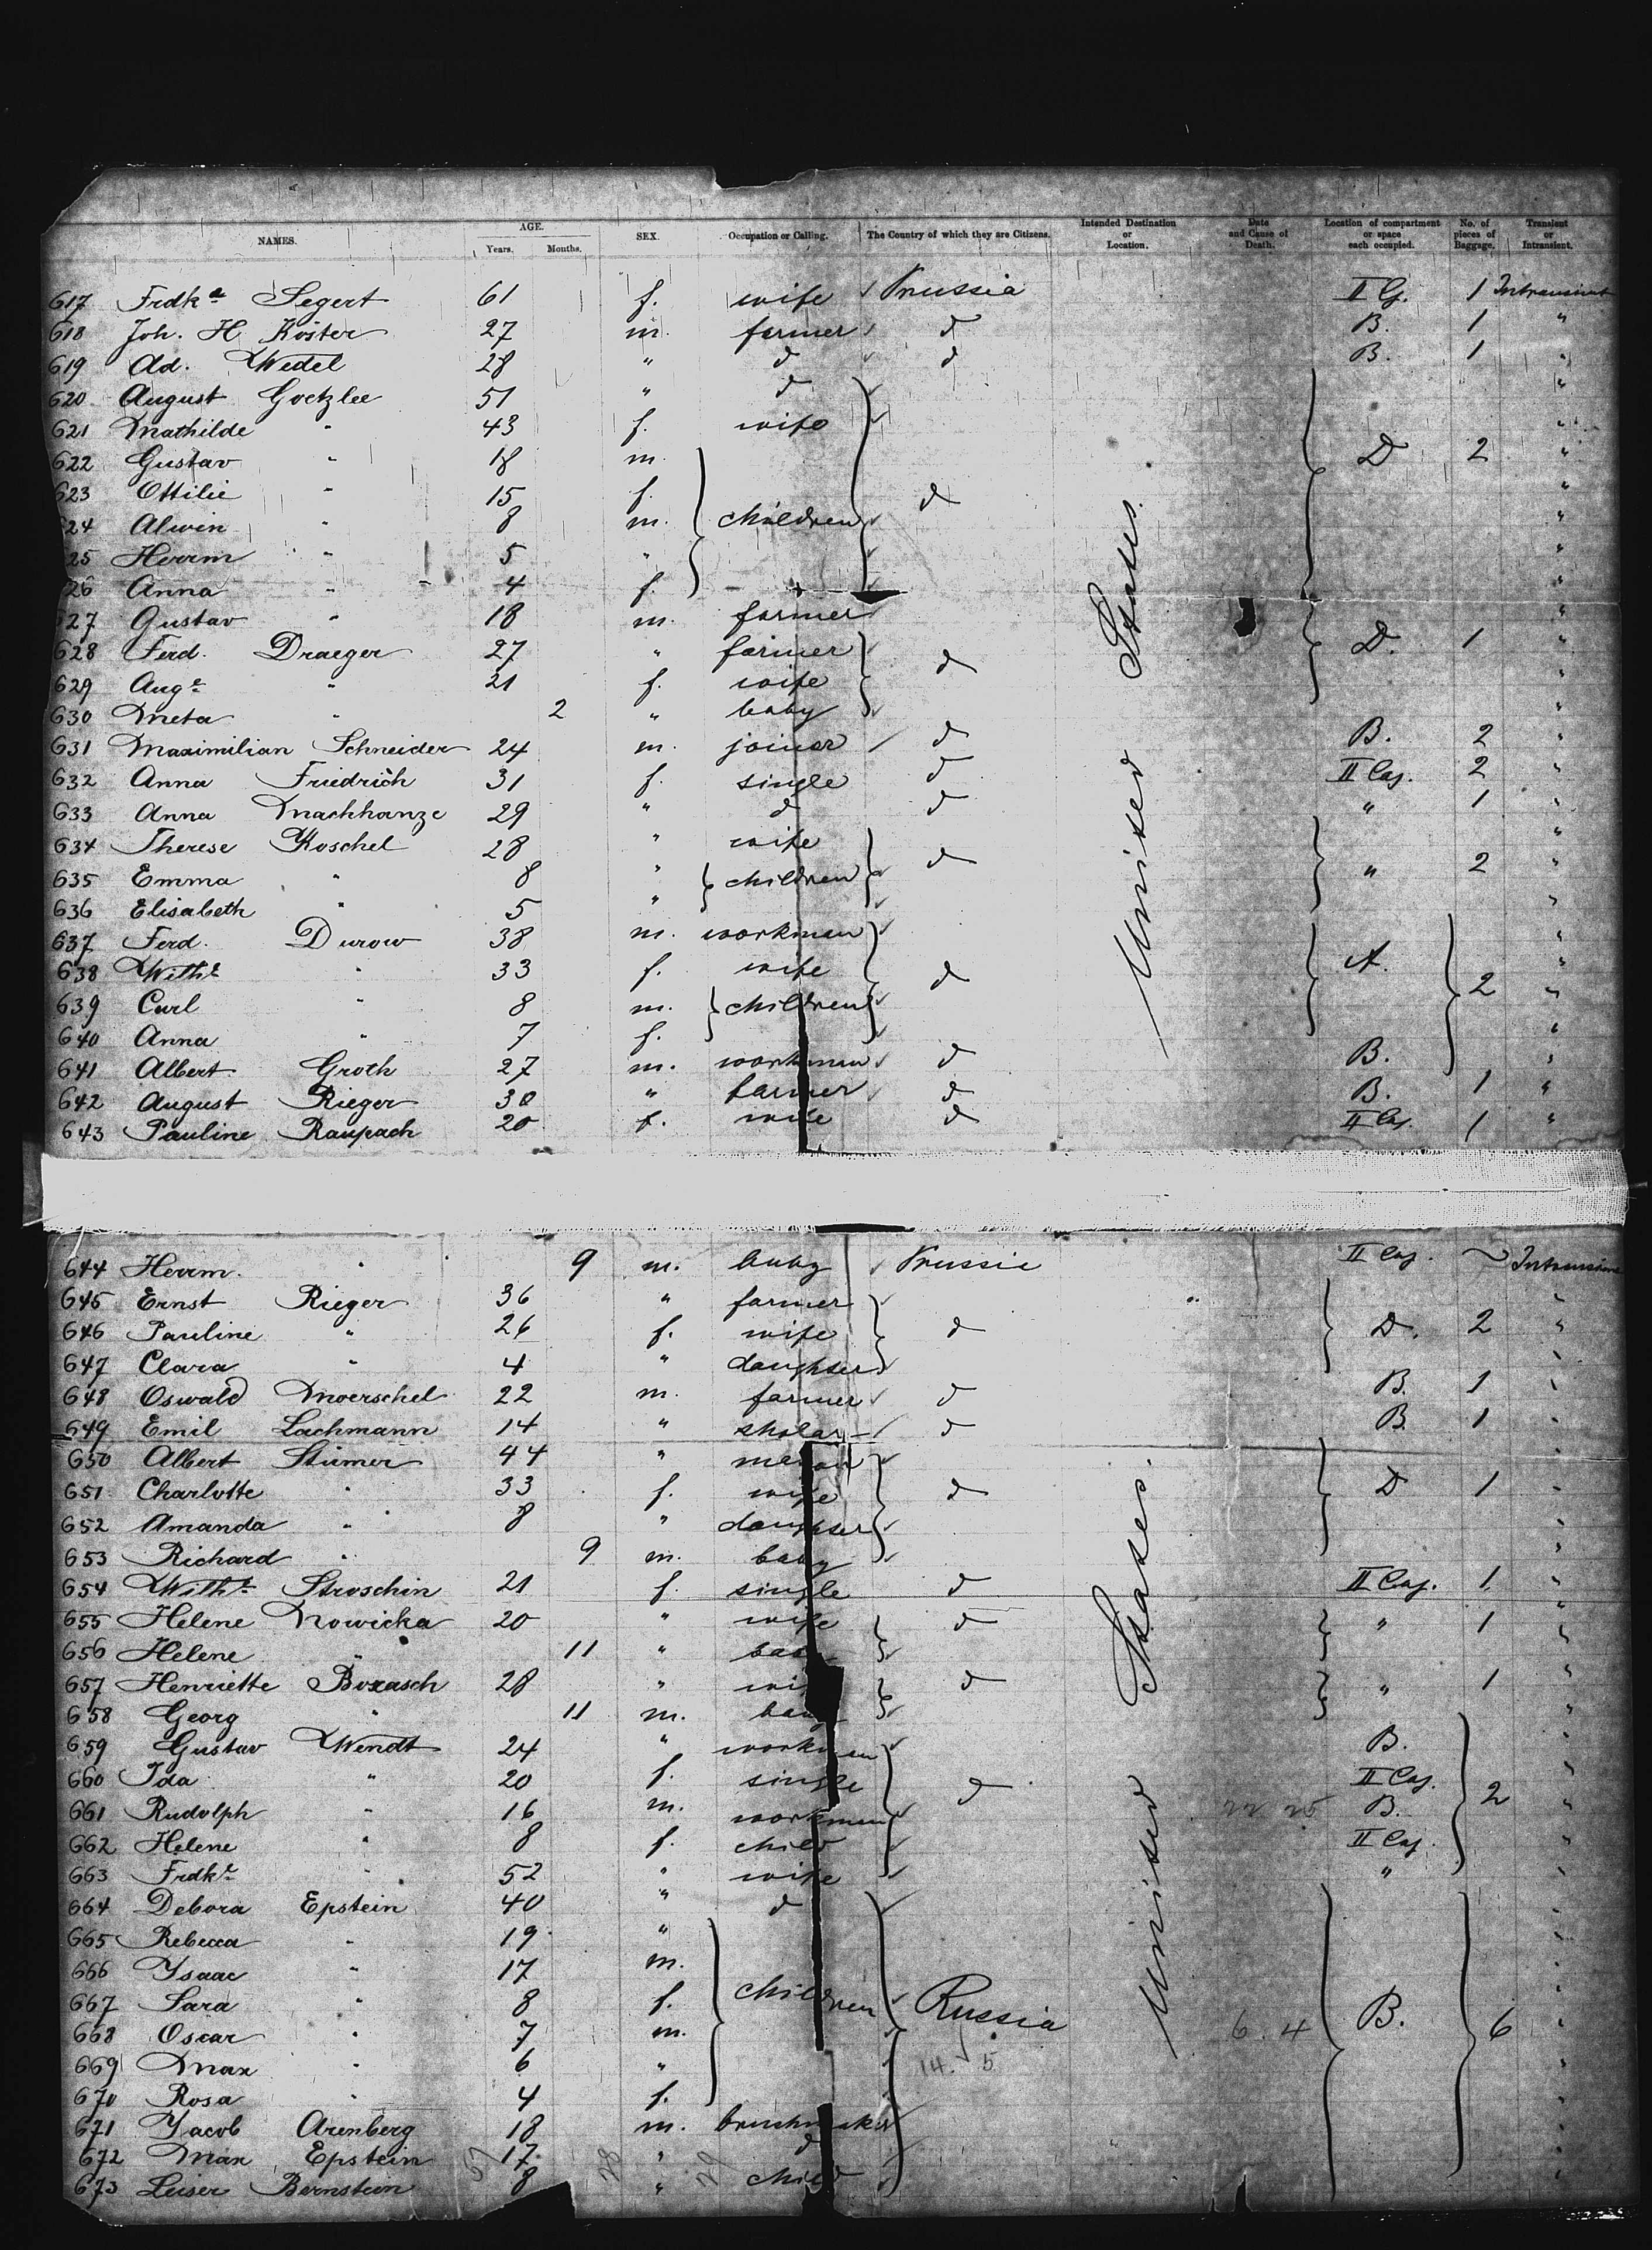 NAMES. AGE. Years. Months. SEX. Occupation or Calling. The Country of which they are Citizens. Intended Destination or Location. Date and Cause of Death. Location of compartment or space each occupied. No. of pieces of Baggage. Transient or Intransient.
617 Frdke Segert 61 f. wife Prussia II Cj. 1 Intransient
618 Joh. H Köster 27 m. farmer d B. 1 "
619 Ad. Wedel 28 " d d B. 1 "
620 August Goetzlee 51 " d "
621 Mathilde " 43 f. wife "
622 Gustav " 18 m. D 2 "
623 Ottilie " 15 f. d "
624 Alwin " 8 m. children "
625 Herrm " 5 " "
626 Anna " 4 f. "
627 Gustav " 18 m. farmer "
628 Ferd. Draeger 27 " farmer d D. 1 "
629 Auge " 21 f. wife "
630 Meta " 2 " baby "
631 Maximilian Schneider 24 m. joiner d B. 2 "
632 Anna Friedrich 31 f. single d II Caj. 2 "
633 Anna Machhanze 29 " d d " 1 "
634 Therese Koschel 28 " wife d "
635 Emma " 8 " children " 2 "
636 Elisabeth " 5 " "
637 Ferd. Durow 38 m. workman "
638 Wilhe " 33 f. wife d A. "
639 Carl " 8 m. children 2 "
640 Anna " 7 f. "
641 Albert Groth 27 m. workman d B. "
642 August Rieger 30 " farmer d B. 1 "
643 Pauline Raupach 20 f. wife d II Caj. 1 "
United States.
644 Herrm. " 9 m. baby Prussia II Caj. ~ Intransient
645 Ernst Rieger 36 " farmer "
646 Pauline " 26 f. wife d D. 2 "
647 Clara " 4 " daughter "
648 Oswald Moerschel 22 m. farmer d B. 1 "
649 Emil Lachmann 14 " skolar d B. 1 "
650 Albert Stümer 44 " mason "
651 Charlotte " 33 f. wife d D 1 "
652 Amanda " 8 " daughter "
653 Richard " 9 m. baby "
654 Wilhe Stroschin 21 f. single d II Caj. 1 "
655 Helene Nowicka 20 " wife d " 1 "
656 Helene " 11 " baby "
657 Henriette Borasch 28 " wife d " 1 "
658 Georg " 11 m. baby "
659 Gustav Wendt 24 " workman B. "
660 Ida " 20 f. single d II Caj. "
661 Rudolph " 16 m. workman 22 25 B. 2 "
662 Helene " 8 f. child II Caj. "
663 Frdke " 52 " wife " "
664 Debora Epstein 40 " d "
665 Rebecca " 19 " "
666 Ysaac " 17 m. "
667 Sara " 8 f. children Russia B. "
668 Oscar " 7 m. 6. 4 6 "
669 Max " 6 " 14. 5 "
670 Rosa " 4 f. "
671 Yacob Arenberg 18 m. brushmaker "
672 Max Epstein 17 " d "
673 Leiser Bernstein 8 " child "
United States.